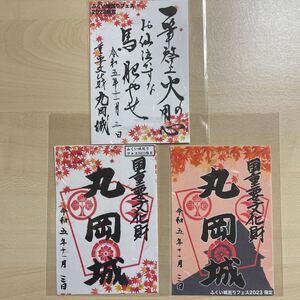 ふくい城巡りフェス
2023限定
一筆啓上火の用心
お仙泣かすな
馬肥やせ
令和五年十一月三日
重要文化財 丸岡城
ふくい城巡り
フェス2023限定
国重要文化財
丸岡城
令和五年十一月三日
国重要文化財
丸岡城
令和五年十一月三日
ふくい城巡りフェス2023 限定